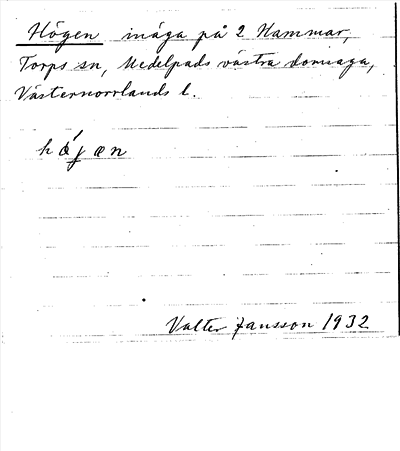 Högen inäga på 2 Hammar,
Torps sn, Medelpads västra domsaga,
Västernorrlands l.
hǿjæn
Valter Jansson 1932